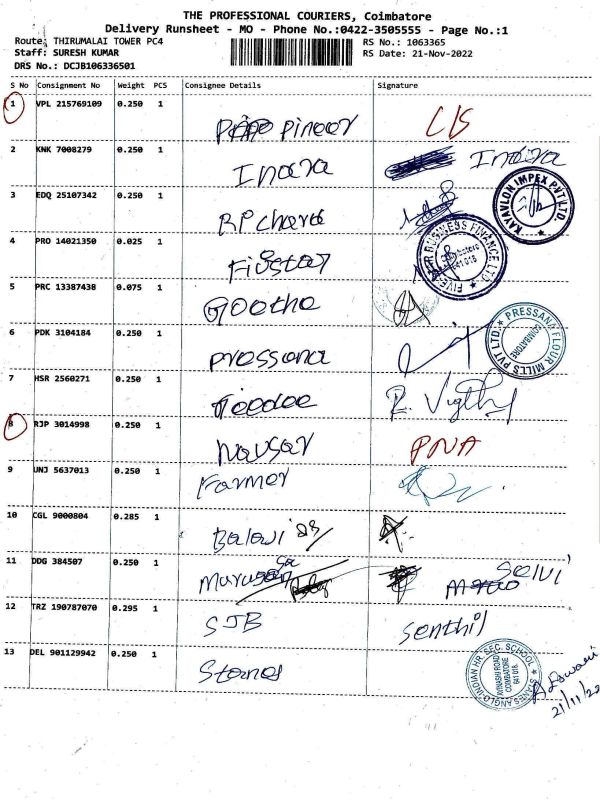 THE PROFESSIONAL COURIERS, Coimbatore
Delivery Runsheet - MO - Phone No.:0422-3505555 - Page No.:1
Route: THIRUMALAI TOWER PC4
RS No.: 1063365
Staff: SURESH KUMAR
RS Date: 21-Nov-2022
DRS No.: DCJB106336501
S No Consignment No Weight PCS Consignee Details Signature
1 VPL 215769109 0.250 1 Pineer
2 KNK 7008279 0.250 1 Indira Indira
KAYAVLON IMPEX PVT LTD.
3 EDQ 25107342 0.250 1 RP
FIVE STAR BUSINESS FINANCE LTD. Coimbatore 641 018
4 PRO 14021350 0.025 1 Fivstar
5 PRC 13387438 0.075 1 Geetha
PRESSANA FLOUR MILLS PVT LTD. COIMBATORE
6 PDK 3104184 0.250 1 pressana
7 HSR 2560271 0.250 1 R.
8 RJP 3014998 0.250 1 PNA
9 UNJ 5637013 0.250 1 Farmer
10 CGL 9000804 0.285 1 Balaji
11 DDG 384507 0.250 1 Murugan Selvi
12 TRZ 190787070 0.295 1 SJB Senthil
13 DEL 901129942 0.250 1 Stanes
STANES ANGLO INDIAN HR. SEC. SCHOOL
AVINASHI ROAD
COIMBATORE
641 018
21/11/22